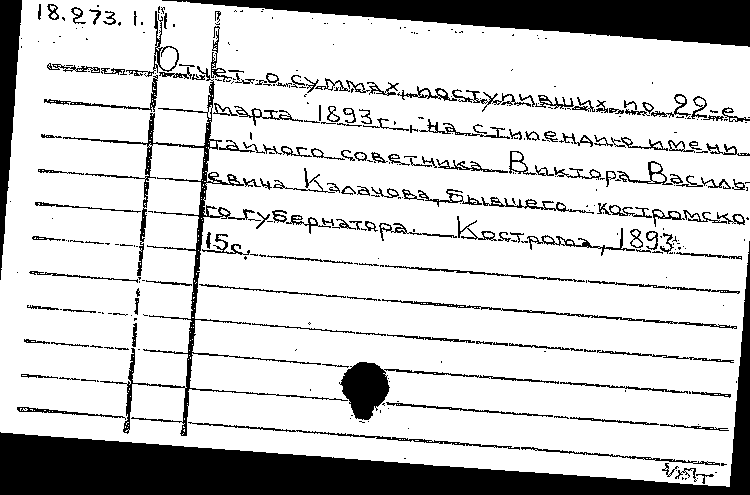 18.273.1.11.
Отчет о суммах, поступивших по 22-е
марта 1893 г., на стипендию имени
тайного советника Виктора Василь-
евича Калачова, бывшего костромско-
го губернатора. Кострома, 1893.
15 с.